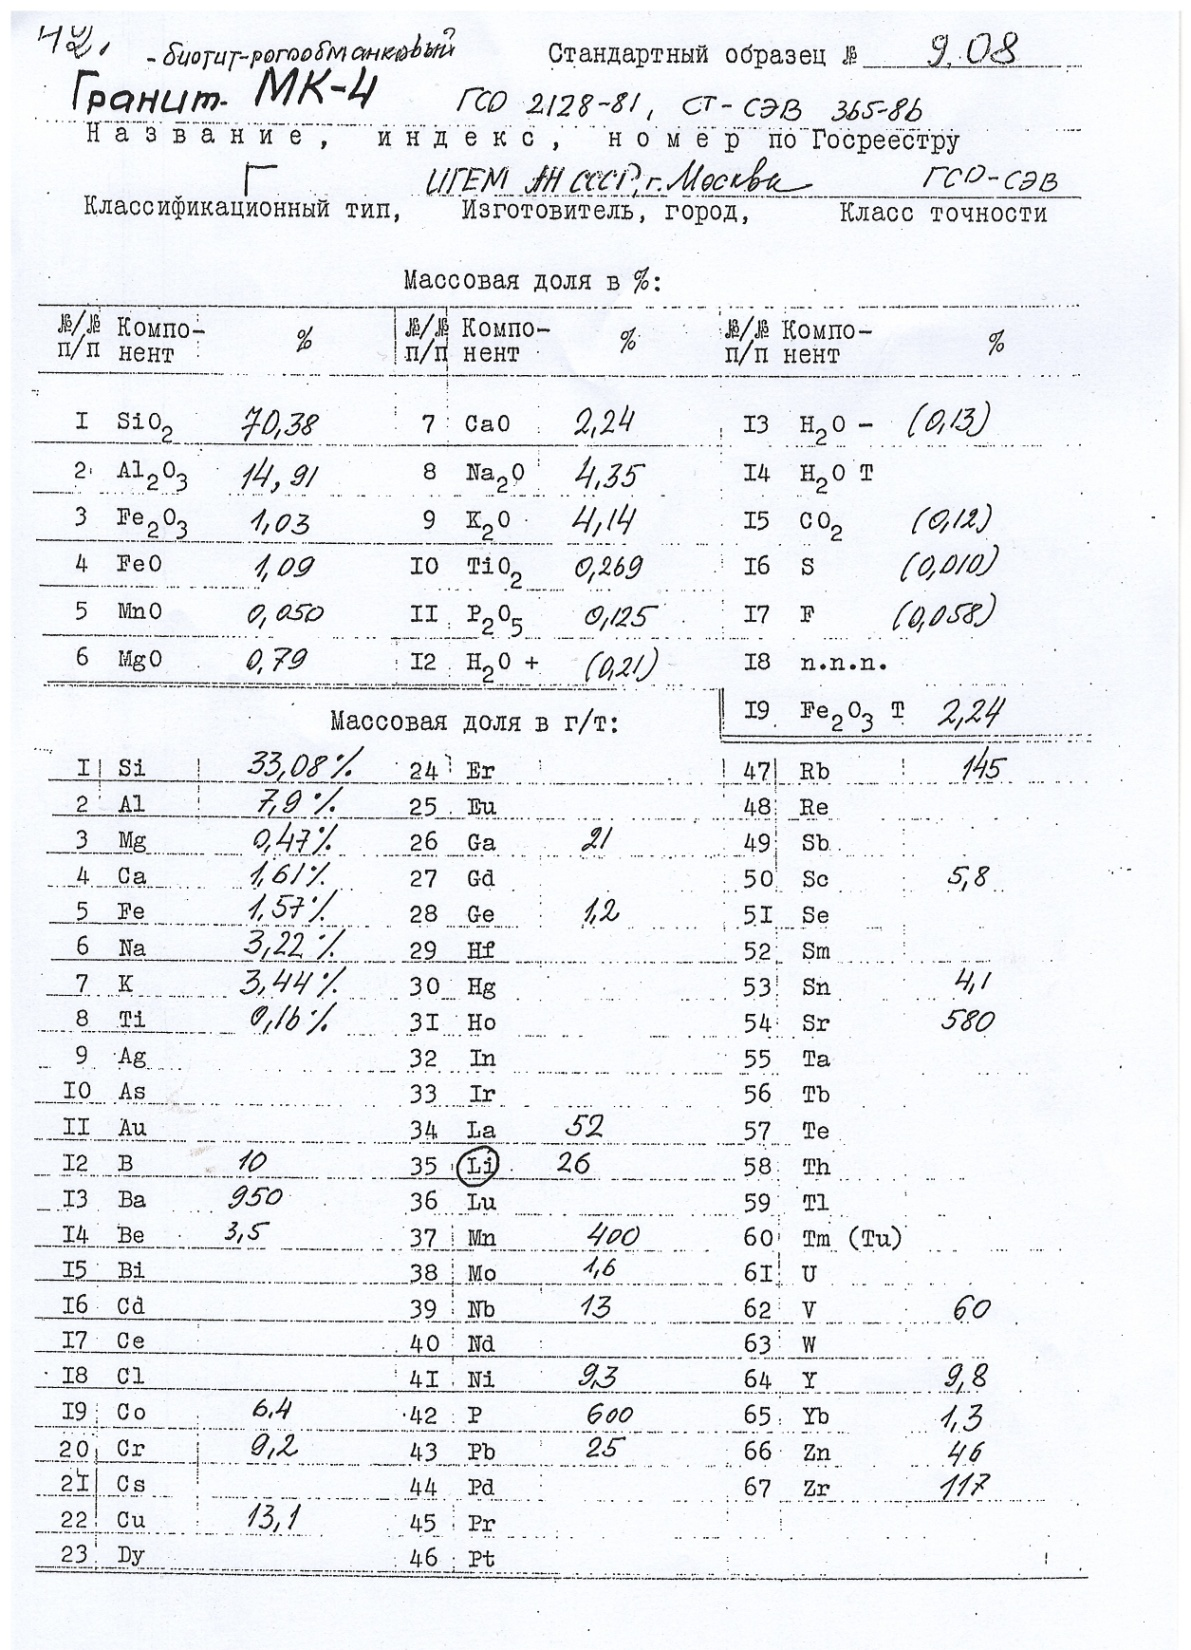 42.
-биотит-рогообманковый Стандартный образец № 9.08
Гранит МК-4 ГСО 2128-81, СТ-СЭВ 365-86
Название, индекс, номер по Госреестру
Г ИГЕМ АН СССР, г. Москва ГСО-СЭВ
Классификационный тип, Изготовитель, город, Класс точности
Массовая доля в %:
№/№ Компо- % №/№ Компо- % №/№ Компо- %
п/п нент п/п нент п/п нент
I SiO2 70,38 7 CaO 2,24 I3 H2O - (0,13)
2 Al2O3 14,91 8 Na2O 4,35 I4 H2O T
3 Fe2O3 1,03 9 K2O 4,14 I5 CO2 (0,12)
4 FeO 1,09 IO TiO2 0,269 I6 S (0,010)
5 MnO 0,050 II P2O5 0,125 I7 F (0,058)
6 MgO 0,79 I2 H2O + (0,21) I8 п.п.п.
Массовая доля в г/т: I9 Fe2O3 T 2,24
I Si 33,08% 24 Er 47 Rb 145
2 Al 7,9% 25 Eu 48 Re
3 Mg 0,47% 26 Ga 21 49 Sb
4 Ca 1,61% 27 Gd 50 Sc 5,8
5 Fe 1,57% 28 Ge 1,2 5I Se
6 Na 3,22% 29 Hf 52 Sm
7 K 3,44% 30 Hg 53 Sn 4,1
8 Ti 0,16% 3I Ho 54 Sr 580
9 Ag 32 In 55 Ta
IO As 33 Ir 56 Tb
II Au 34 La 52 57 Te
I2 B 10 35 Li 26 58 Th
I3 Ba 950 36 Lu 59 Tl
I4 Be 3,5 37 Mn 400 60 Tm (Tu)
I5 Bi 38 Mo 1,6 6I U
I6 Cd 39 Nb 13 62 V 60
I7 Ce 40 Nd 63 W
I8 Cl 4I Ni 9,3 64 Y 9,8
I9 Co 6,4 42 P 600 65 Yb 1,3
20 Cr 9,2 43 Pb 25 66 Zn 46
2I Cs 44 Pd 67 Zr 117
22 Cu 13,1 45 Pr
23 Dy 46 Pt